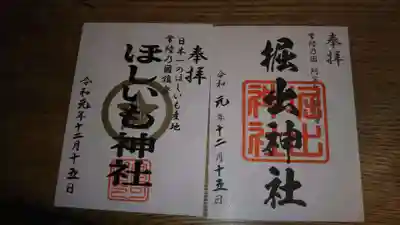 奉拝
常陸乃國
掘出神社
令和元年十二月十五日
奉拝
日本一のほしいも産地
常陸乃國
ほしいも神社
令和元年十二月十五日